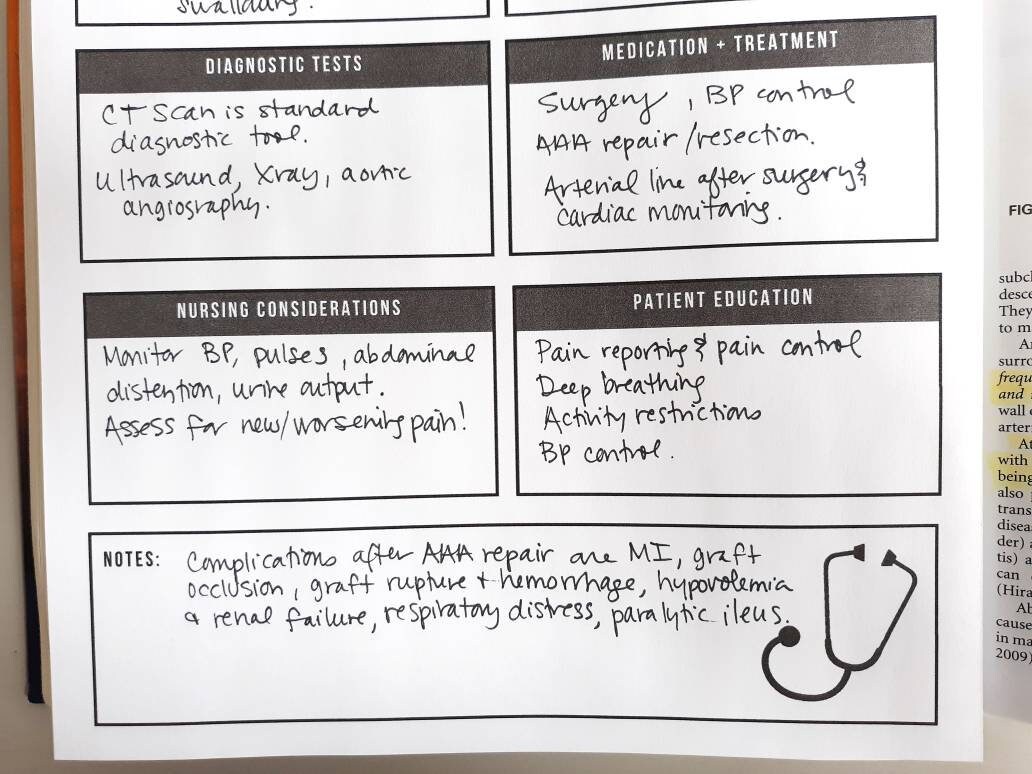 swallowing.
DIAGNOSTIC TESTS
CT Scan is standard
diagnostic tool.
Ultrasound, Xray, aortic
angiography.
MEDICATION + TREATMENT
Surgery, BP control
AAA repair/resection.
Arterial line after surgery &
cardiac monitoring.
NURSING CONSIDERATIONS
Monitor BP, pulses, abdominal
distention, urine output.
Assess for new/worsening pain!
PATIENT EDUCATION
Pain reporting & pain control
Deep breathing
Activity restrictions
BP control.
NOTES: Complications after AAA repair are MI, graft
occlusion, graft rupture + hemorrhage, hypovolemia
& renal failure, respiratory distress, paralytic ileus.
FIG
subcl
desce
They
to m
surro
frequ
and
wall
arter
At
with
being
also
trans
disea
der)
tis) a
can
(Hira
Ab
cause
in ma
2009)